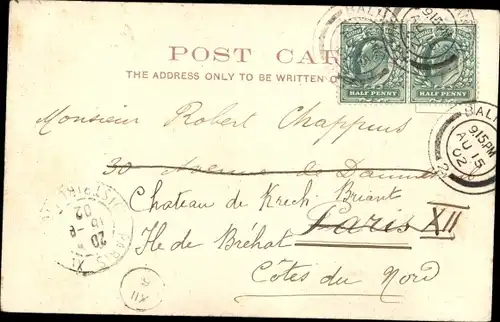 POST CAR
THE ADDRESS ONLY TO BE WRITTEN O
HALF PENNY HALF PENNY
BALI
9.15PM
AU 15
02
Monsieur Robert Chappuis
30 Avenue de Daumesnil
Chateau de Krech-Briant
Paris XII
Ile de Bréhat
Côtes du Nord
PARIS
20
16 - 8
02
DISTRIB
XII